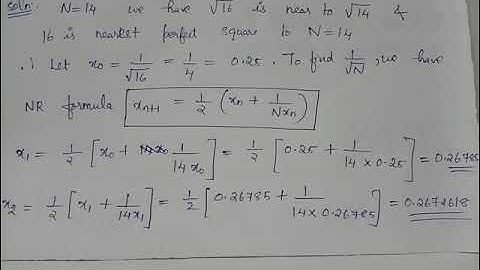 Soln: N=14 we have √16 is near to √14 &
16 is nearest perfect square to N=14
∴ Let x₀ = 1/√16 = 1/4 = 0.25. To find 1/√N, we have
NR formula x_{n+1} = 1/2 (x_n + 1/(N x_n))
x₁ = 1/2 [x₀ + 1/(14 x₀)] = 1/2 [0.25 + 1/(14×0.25)] = 0.26785
x₂ = 1/2 [x₁ + 1/(14x₁)] = 1/2 [0.26785 + 1/(14×0.26785)] = 0.2672618